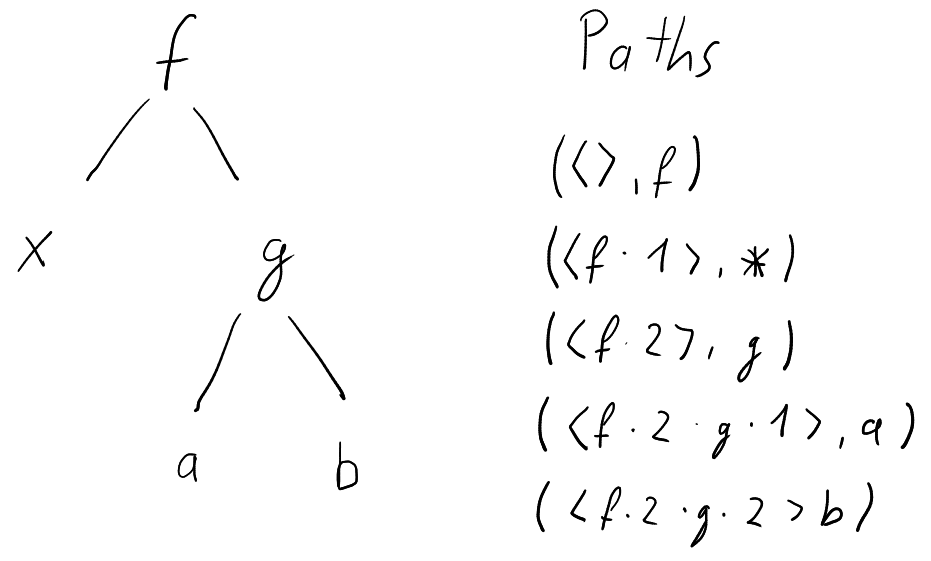 f
x
g
a b
Paths
(⟨⟩, f)
(⟨f · 1⟩, *)
(⟨f · 2⟩, g)
(⟨f · 2 · g · 1⟩, a)
(⟨f · 2 · g · 2⟩ b)